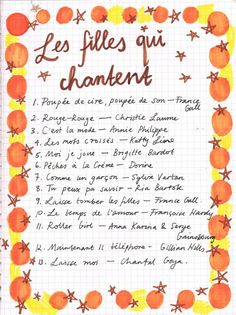 Les filles qui
chantent
1. Poupée de cire, poupée de son — France
Gall
2. Rouge-Rouge — Christie Laume
3. C'est la mode — Annie Philippe
4. Les mots croisés — Katty Line
5. Moi je joue — Brigitte Bardot
6. Pêches à la Crème — Dorine
7. Comme un garçon — Sylvie Vartan
8. Tu peux pa savoir — Ria Bartok
9. Laisse tomber les filles — France Gall
10. Le temps de l'amour — Françoise Hardy
11. Roller Girl — Anna Karina & Serge
Gainsbourg
12. Maintenant il téléphone — Gillian Hills
13. Laisse moi — Chantal Goya